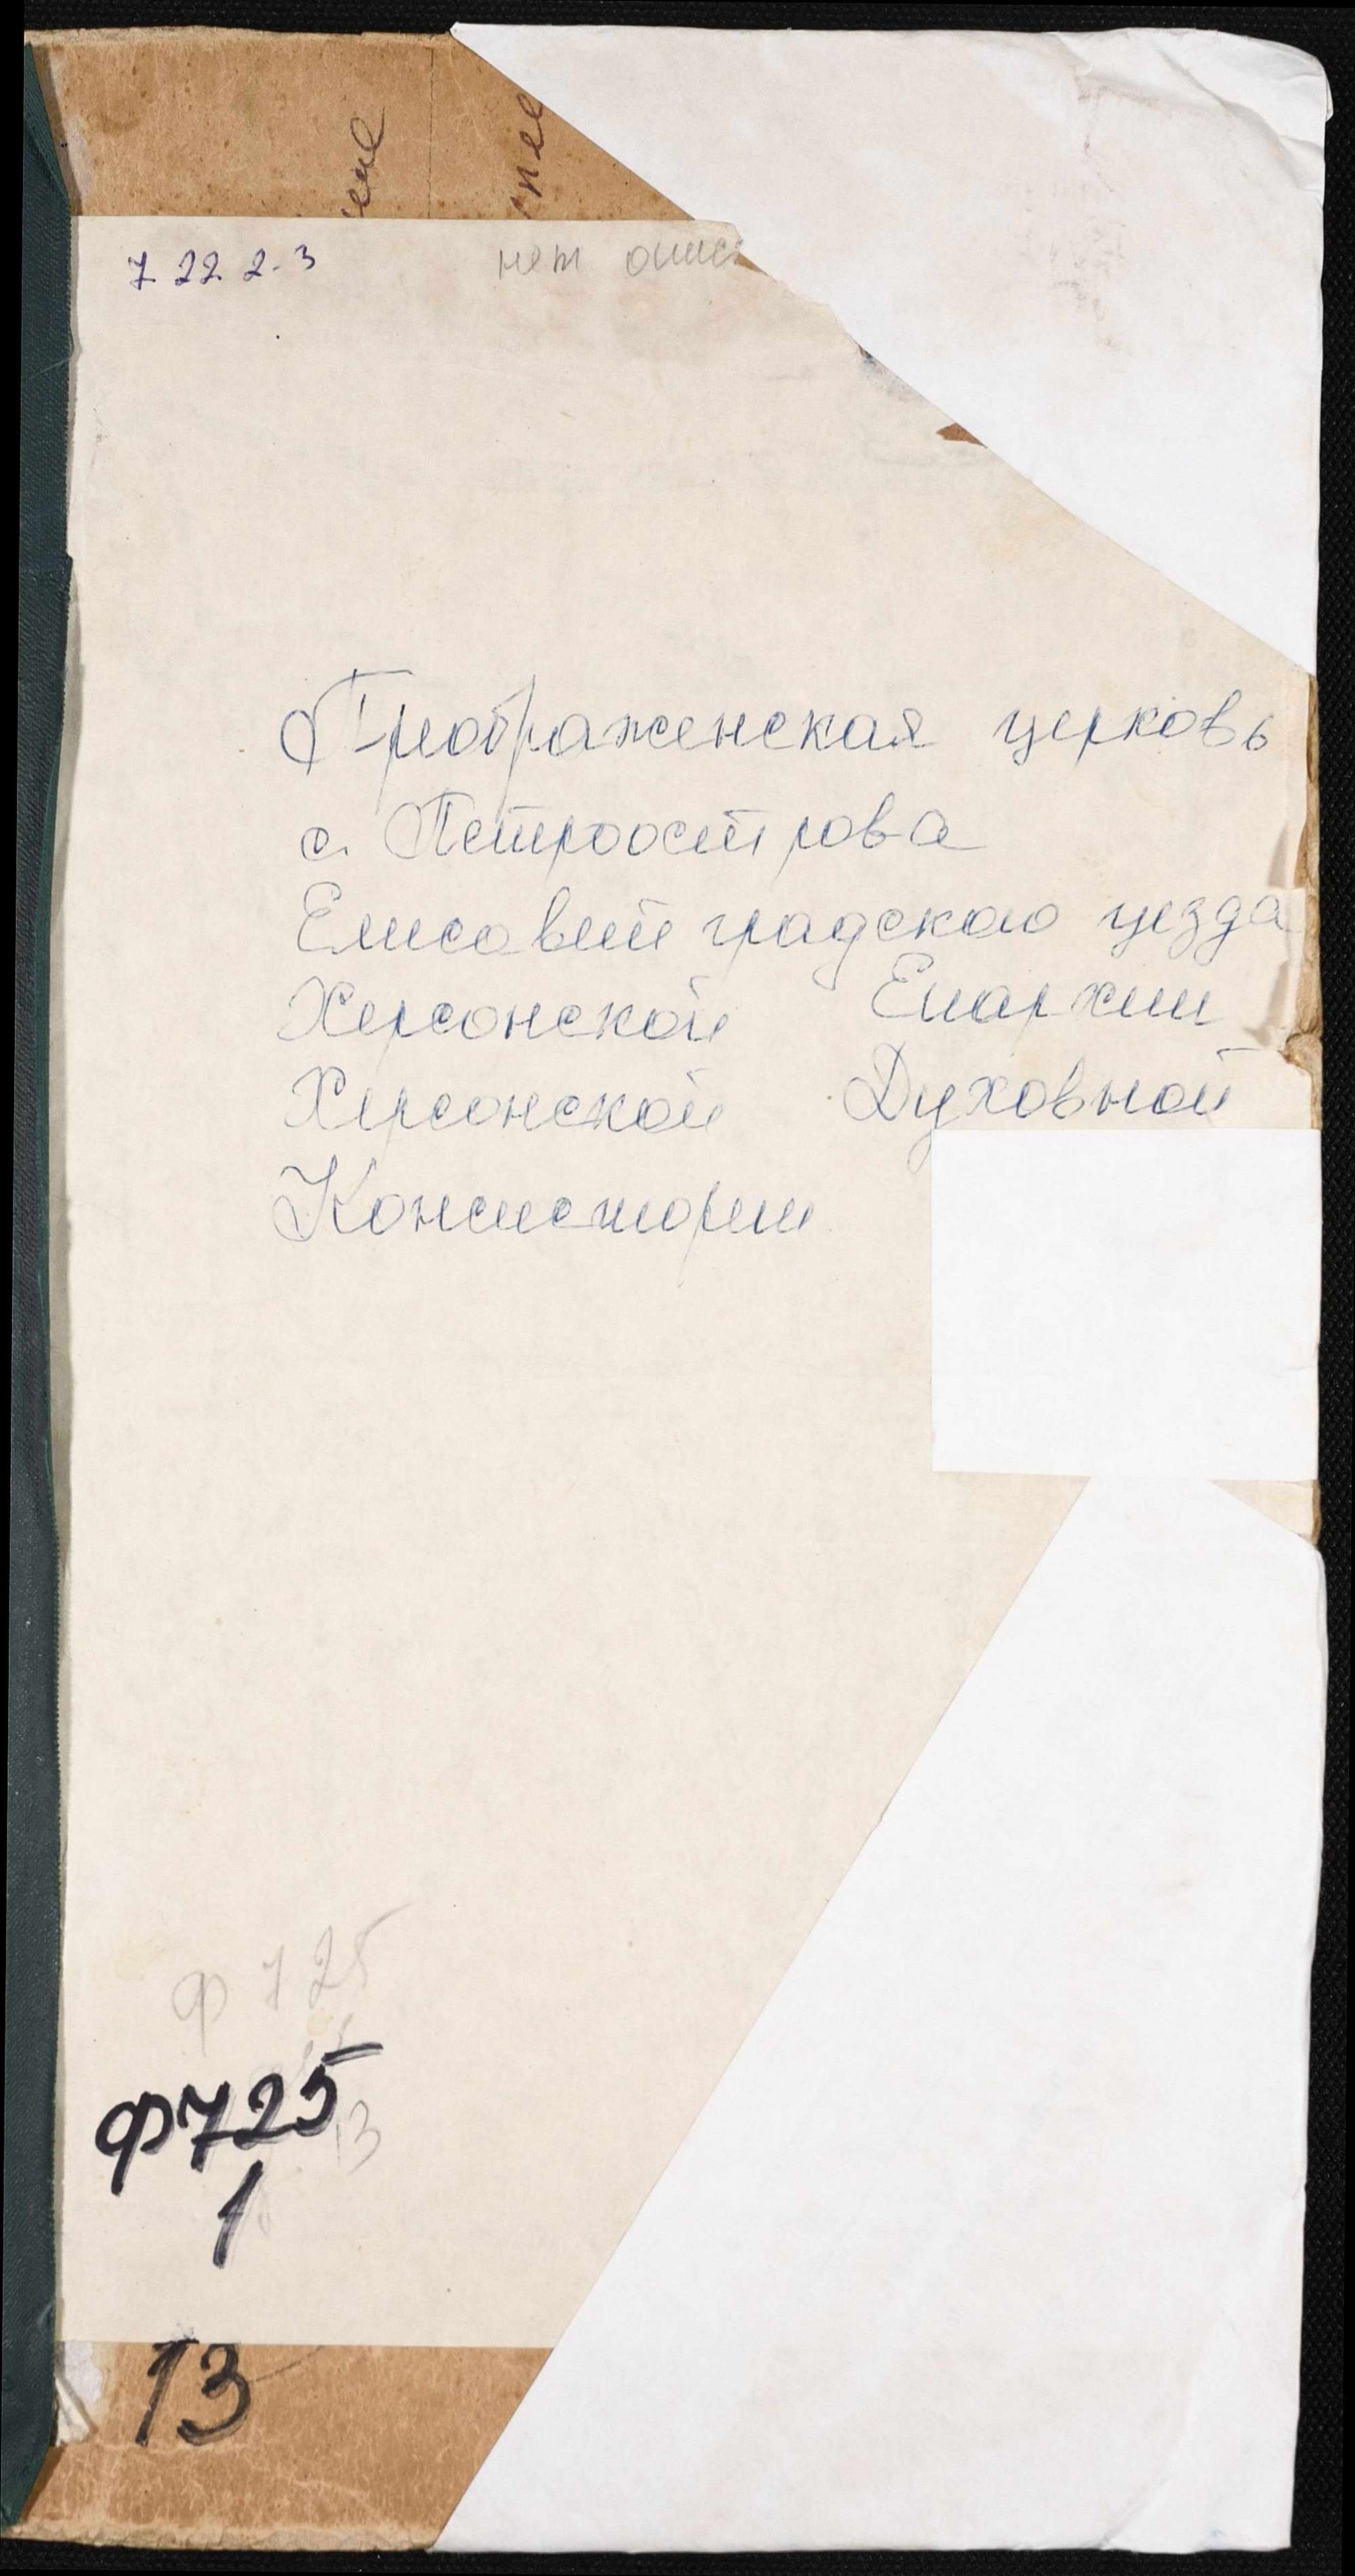 7 22 2-3
нет
Преображенская церковь
с. Петроострова
Елисаветградского уезда
Херсонской Епархии
Херсонской Духовной
Консистории
Ф 725
Ф725
13
1
13